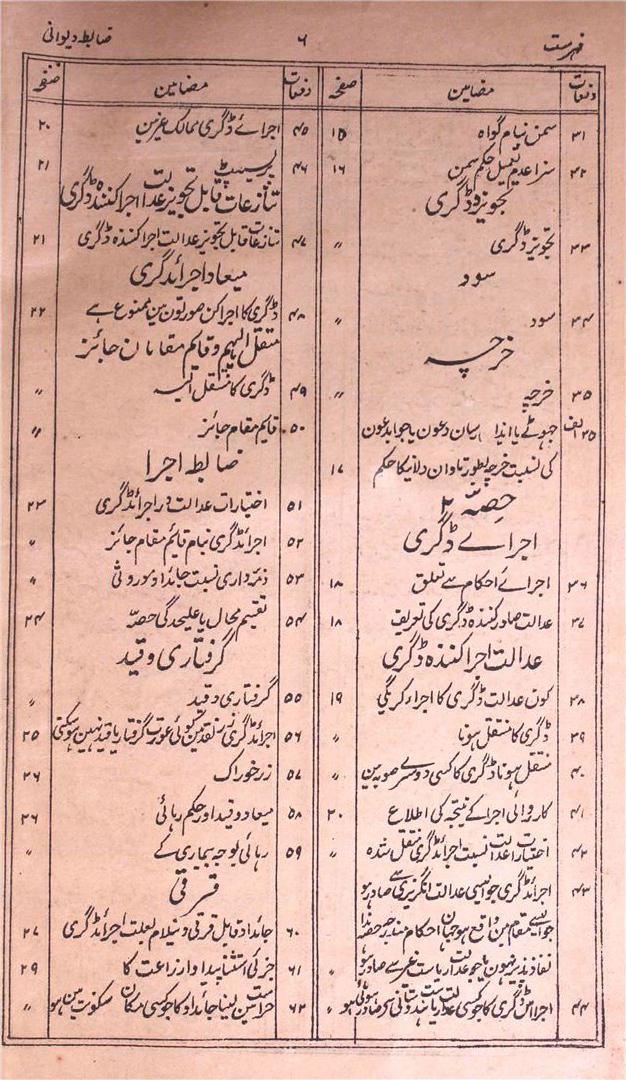 فہرست ۶ ضابطہ دیوانی
دفعات مضامین صفحہ
۳۱ سمن بنام گواہ ۱۵
۳۲ سزا عدم تعمیل حکم سمن ۱۶
تجویز و ڈگری
۳۳ تجویز ڈگری 〃
سود
۳۴ سود 〃
خرچہ
۳۵ خرچہ 〃
۳۵ الف جھوٹے یا ایذا رسان دعون یا جوابدعون
کی نسبت خرچہ بطور تاوان دلانیکا حکم ۱۷
حصّہ ۲
اجراے ڈگری
۳۶ اجراے احکام سے تعلق ۱۸
۳۷ عدالت صادر کنندہ ڈگری کی تعریف ۱۸
عدالت اجرا کنندہ ڈگری
۳۸ کون عدالت ڈگری کا اجراء کریگی ۱۹
۳۹ ڈگری کا منتقل ہونا 〃
۴۰ منتقل ہونا ڈگری کا کسی دوسرے صوبہ مین 〃
۴۱ کاروائی اجرا کے نتیجہ کی اطلاع ۲۰
۴۲ اختیارات عدالت نسبت اجرائڈگری منتقل شدہ 〃
۴۳ اجرائڈگری جو ایسی عدالت انگریزی سے صادر ہو
جو ایسے مقام مین واقع ہو جہان احکام مندرجہ حصہ ہذا
نفاذ پذیر نہون یا جو عدالت ریاست غیر سے صادر ہو 〃
۴۴ اجراے ڈگری کا جو کسی عدالت ریاست ہندوستانی سے صادر ہوئی ہو 〃
دفعات مضامین صفحہ
۴۵ اجراے ڈگری ممالک غیر مین ۲۰
۴۶ پریسیپٹ ۲۱
تنازعات قابل تجویز عدالت اجرا کنندہ ڈگری
۴۷ تنازعات قابل تجویز عدالت اجرا کنندہ ڈگری ۲۱
میعاد اجرائڈگری
۴۸ ڈگری کا اجرا کن صورتون مین ممنوع ہے ۲۲
منتقل الیہم و قایم مقامان جائز
۴۹ ڈگری کا منتقل الیہ 〃
۵۰ قایم مقام جائز 〃
ضابطہ اجرا
۵۱ اختیارات عدالت در اجرائڈگری ۲۳
۵۲ اجرائڈگری بنام قایم مقام جائز 〃
۵۳ ذمہ داری نسبت جائداد موروثی 〃
۵۴ تقسیم محال یا علیحدگی حصّہ ۲۴
گرفتاری و قید
۵۵ گرفتاری و قید 〃
۵۶ اجرائڈگری زر نقد مین کوئی عورت گرفتار یا قید نہین ہوسکتی ۲۵
۵۷ زر خوراک ۲۶
۵۸ میعاد قید اور حکم رہائی ۲۶
۵۹ رہائی بوجہ بیماری کے 〃
قرقی
۶۰ جائداد قابل قرقی و نیلام بعلت اجرائڈگری ۲۷
۶۱ جز کی استثنا پیداوار زراعت کا ۲۹
۶۲ حراست مین لینا جائداد کا جو کسی مکان سکونت مین ہو 〃